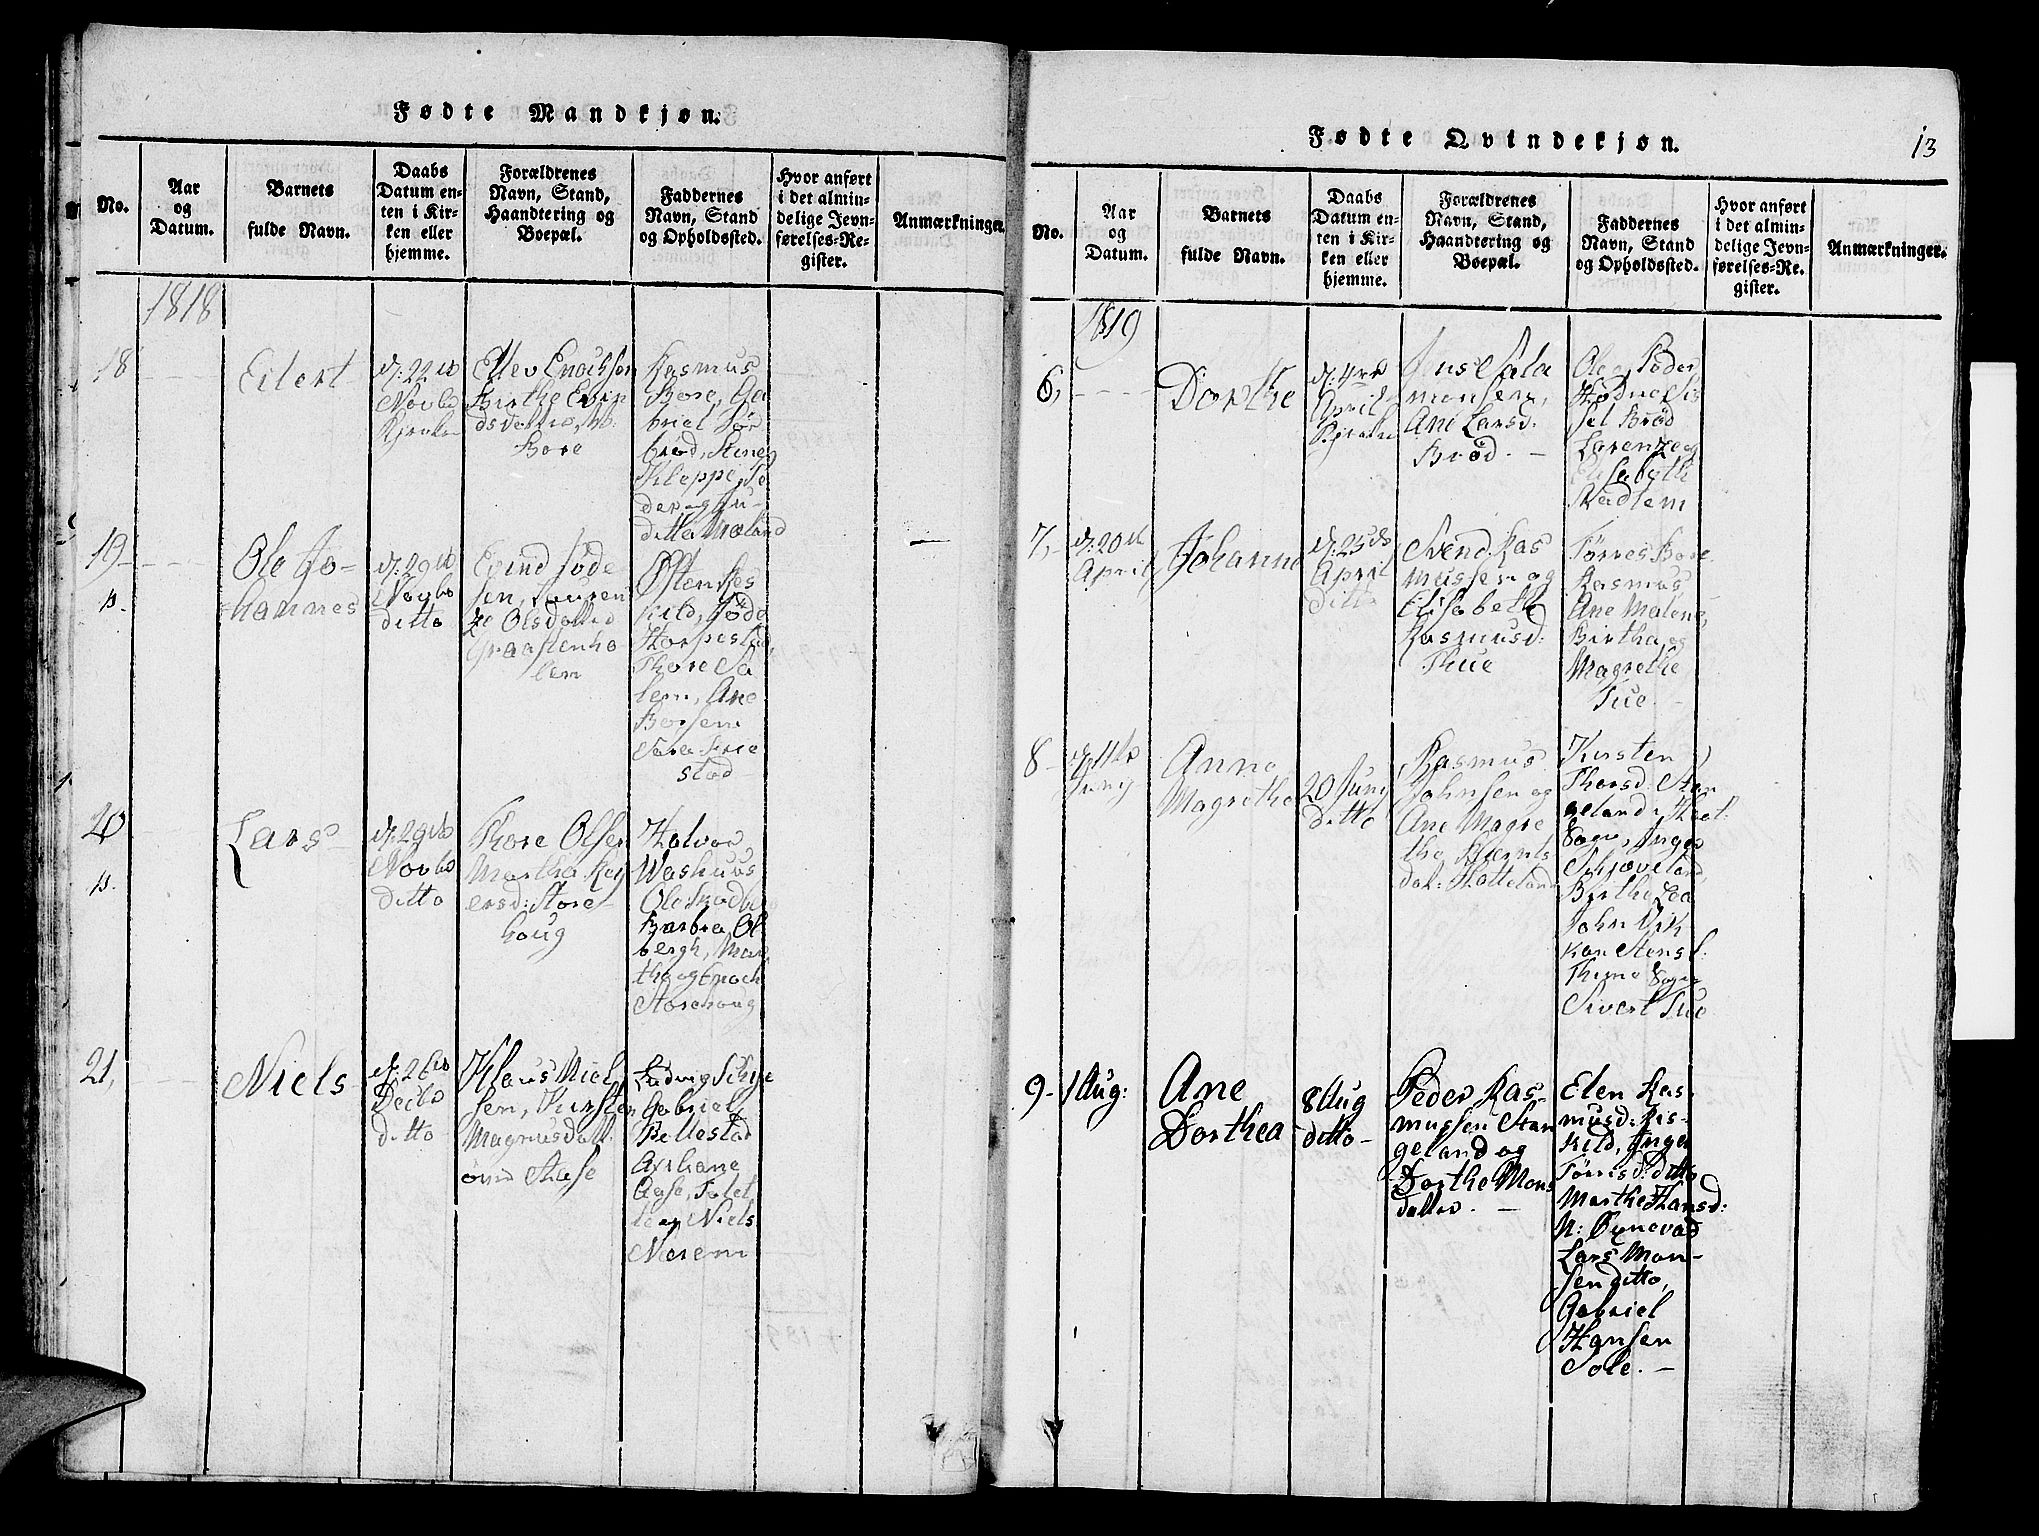 Fødte Mandkjøn.
No.
Aar
og
Datum.
Barnets
fulde Navn.
Daabs
Datum en-
ten i Kir-
ken eller
hjemme.
Forældrenes
Navn, Stand,
Haandtering og
Boepæl.
Faddernes
Navn, Stand
og Opholdssted.
Hvor anført
i det almin-
delige Jevn-
førelses-Re-
gister.
Anmærkninger.
1818
18
Eilert
d: 22de
Novbr
Kjirken
Ellev Enochsen
Birthe Evin
dsdatter
Bore
Rasmus
Bore, Ga
briel
Stine
Kleppe, Pe
der og Gu-
ditta Mæland
19
Ole Jo-
hannes
d: 29de
Novbr
ditto
Evind Jøde
sen, Lauren
ze Olsdatter
Graaftenho
len
Østen Res
kild, Jøde
Horpestad,
Thore Sa
lem, Ane
Bersem
Sara
stad
20
Lars
d: 29de
Novbr
ditto
Thore Olsen
Martha Rey
ersd: Store
houg
Halvor
Washuus
Ole
Barbra Ol
bergh, Mar
tha og Enoch
Storehoug
21,
Niels
d: 26de
Decbr
ditto
Klaus Niel
sen, Kirsten
Magnusdatt:
Aase
Ludvig
Gabriel
Pollestad
Axeliane
Aase, Tolet
Niels
Nærem
Fødte Qvindekjøn.
13
No.
Aar
og
Datum.
Barnets
fulde Navn.
Daabs
Datum en-
ten i Kir-
ken eller
hjemme.
Forældrenes
Navn, Stand,
Haandtering og
Boepæl.
Faddernes
Navn, Stand
og Opholdssted.
Hvor anført
i det almin-
delige Jevn-
førelses-Re-
gister.
Anmærkninger.
1819
6,
Dorthe
d: 4de
April
Kjirken
Jens Sala
monsen,
Ane Larsd.
Brød. -
Ole, Peder
Hodne Sis
sel Brød
Lorenze og
Elisabeth
Skadlem
7,
d: 20de
April
Johanne
d: 25de
April
ditto
Svend Ras
mussen og
Elisabeth
Rasmusd:
Thue
Tørres Bore
Rasmus,
Ane Malene,
Birtha, og
Magrethe
Tue. -
8
d: 11te
Juny
Anna
Magrethe
20 Juny
ditto
Rasmus
Johnsen og
Ane Magre
the
dat: Hatteland
Kirsten
Thorsd. Stan
geland,
Sogn, Inger
Schjæveland,
Birthe Lea
John Virk
Kari Stensl:
Thime Sogn
Sivert Tue
9 -
1 Aug:
Ane
Dorthea
8 Aug
ditto -
Peder Ras-
mussen Stan
geland og
Dorthe Mons
datter. -
Elen Ras
musd: Ris-
kild, Inger
Tørrisd: ditto
Marthe Hansd:
N: Øxnevad
Lars Mon-
sen ditto,
Gabriel
Hansen
Sole. -